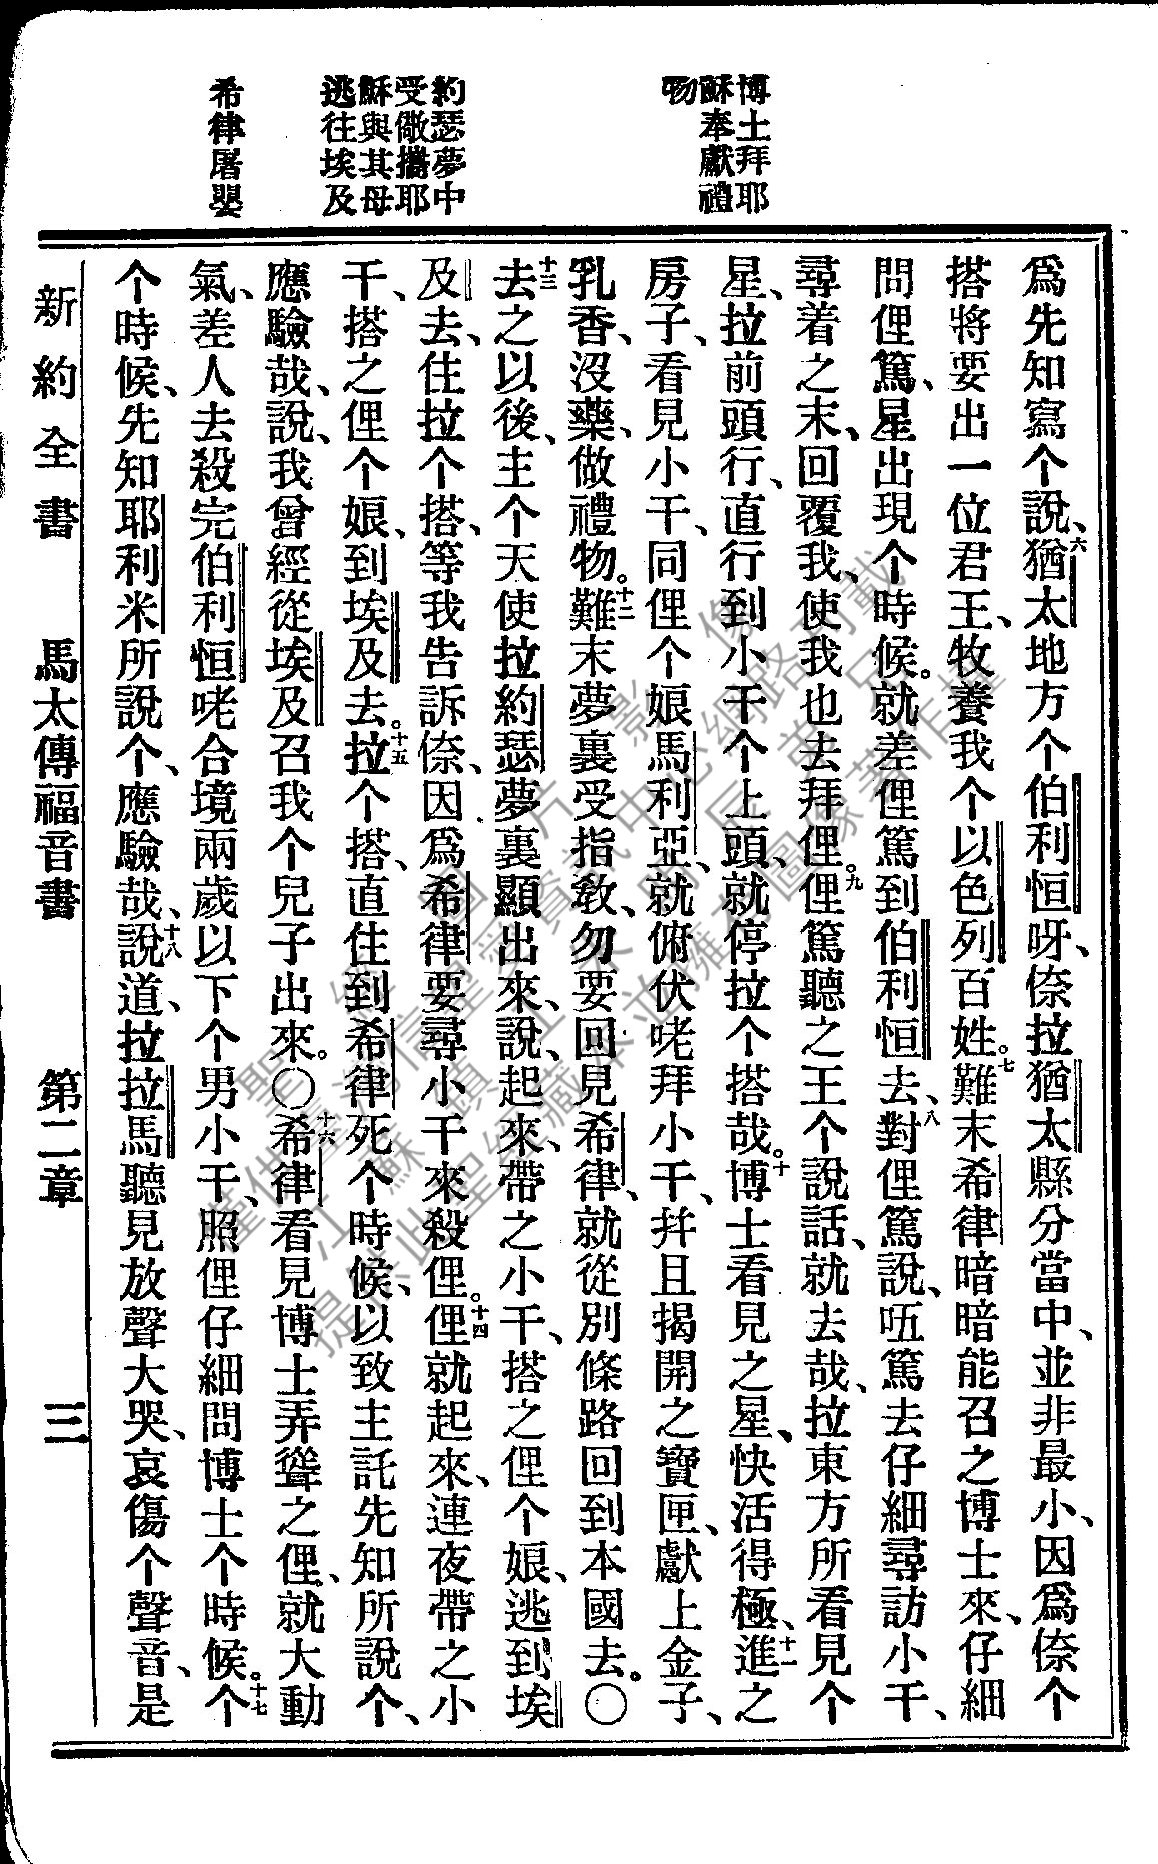 博士拜耶
穌奉獻禮
物
約瑟夢中
受儆攜耶
穌與其母
逃往埃及
希律屠嬰
爲先知寫个說、六猶太地方个伯利恒呀、倷拉猶太縣分當中、並非最小、因爲倷个
搭將要出一位君王、牧養我个以色列百姓。七難末希律暗暗能召之博士來、仔細
問俚篤、星出現个時候。就差俚篤到伯利恒去、八對俚篤說、㕶篤去仔細尋訪小干、
尋着之末、回覆我、使我也去拜俚。九俚篤聽之王个說話、就去哉、拉東方所看見个
星、拉前頭行、直行到小干个上頭、就停拉个搭哉。十博士看見之星、快活得極、十一進之
房子、看見小干、同俚个娘馬利亞、就俯伏咾拜小干、幷且揭開之寶匣、獻上金子、
乳香、沒藥、做禮物。十二難末夢裏受指敎、勿要回見希律、就從別條路回到本國去。〇
十三去之以後、主个天使拉約瑟夢裏顯出來、說、起來、帶之小干、搭之俚个娘、逃到埃
及去、住拉个搭、等我告訴倷、因爲希律要尋小干來殺俚。十四俚就起來、連夜帶之小
干、搭之俚个娘、到埃及去。十五拉个搭、直住到希律死个時候、以致主託先知所說个、
應驗哉、說、我曾經從埃及召我个兒子出來。〇十六希律看見博士弄聳之俚、就大動
氣、差人去殺完伯利恒咾合境兩歲以下个男小干、照俚仔細問博士个時候。十七个
个時候、先知耶利米所說个、應驗哉、十八說道、拉拉馬聽見放聲大哭、哀傷个聲音、是
新約全書 馬太傳福音書 第二章 三
聖經圖片影像
僅供臺灣信望愛資訊中心網路刊載
江蘇鎮江
提供此聖經藏本並擁有圖像著作權